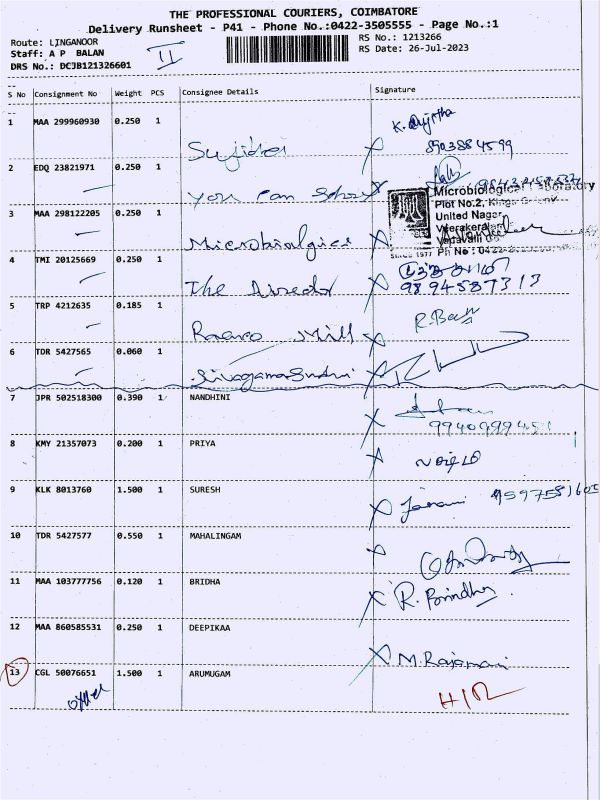 THE PROFESSIONAL COURIERS, COIMBATORE
Delivery Runsheet - P41 - Phone No.:0422-3505555 - Page No.:1
Route: LINGANOOR
RS No.: 1213266
Staff: A P BALAN
RS Date: 26-Jul-2023
DRS No.: DCJB121326601
II
S No Consignment No Weight PCS Consignee Details Signature
1 MAA 299960930 0.250 1 K. Sujitha
8903884599
2 EDQ 23821971 0.250 1 You Can
Microbiological Laboratory
Plot No.2,
United Nagar,
3 MAA 298122205 0.250 1 Microbiologica
SINCE 1977 Ph No : 0422-
4 TMI 20125669 0.250 1 The
9894587313
5 TRP 4212635 0.185 1 Mill R.
6 TDR 5427565 0.060 1
7 JPR 502518300 0.390 1 NANDHINI
9940999451
8 KMY 21357073 0.200 1 PRIYA
9 KLK 8013760 1.500 1 SURESH
10 TDR 5427577 0.550 1 MAHALINGAM
11 MAA 103777756 0.120 1 BRIDHA R. Brindha
12 MAA 860585531 0.250 1 DEEPIKAA M. Rajamani
13 CGL 50076651 1.500 1 ARUMUGAM